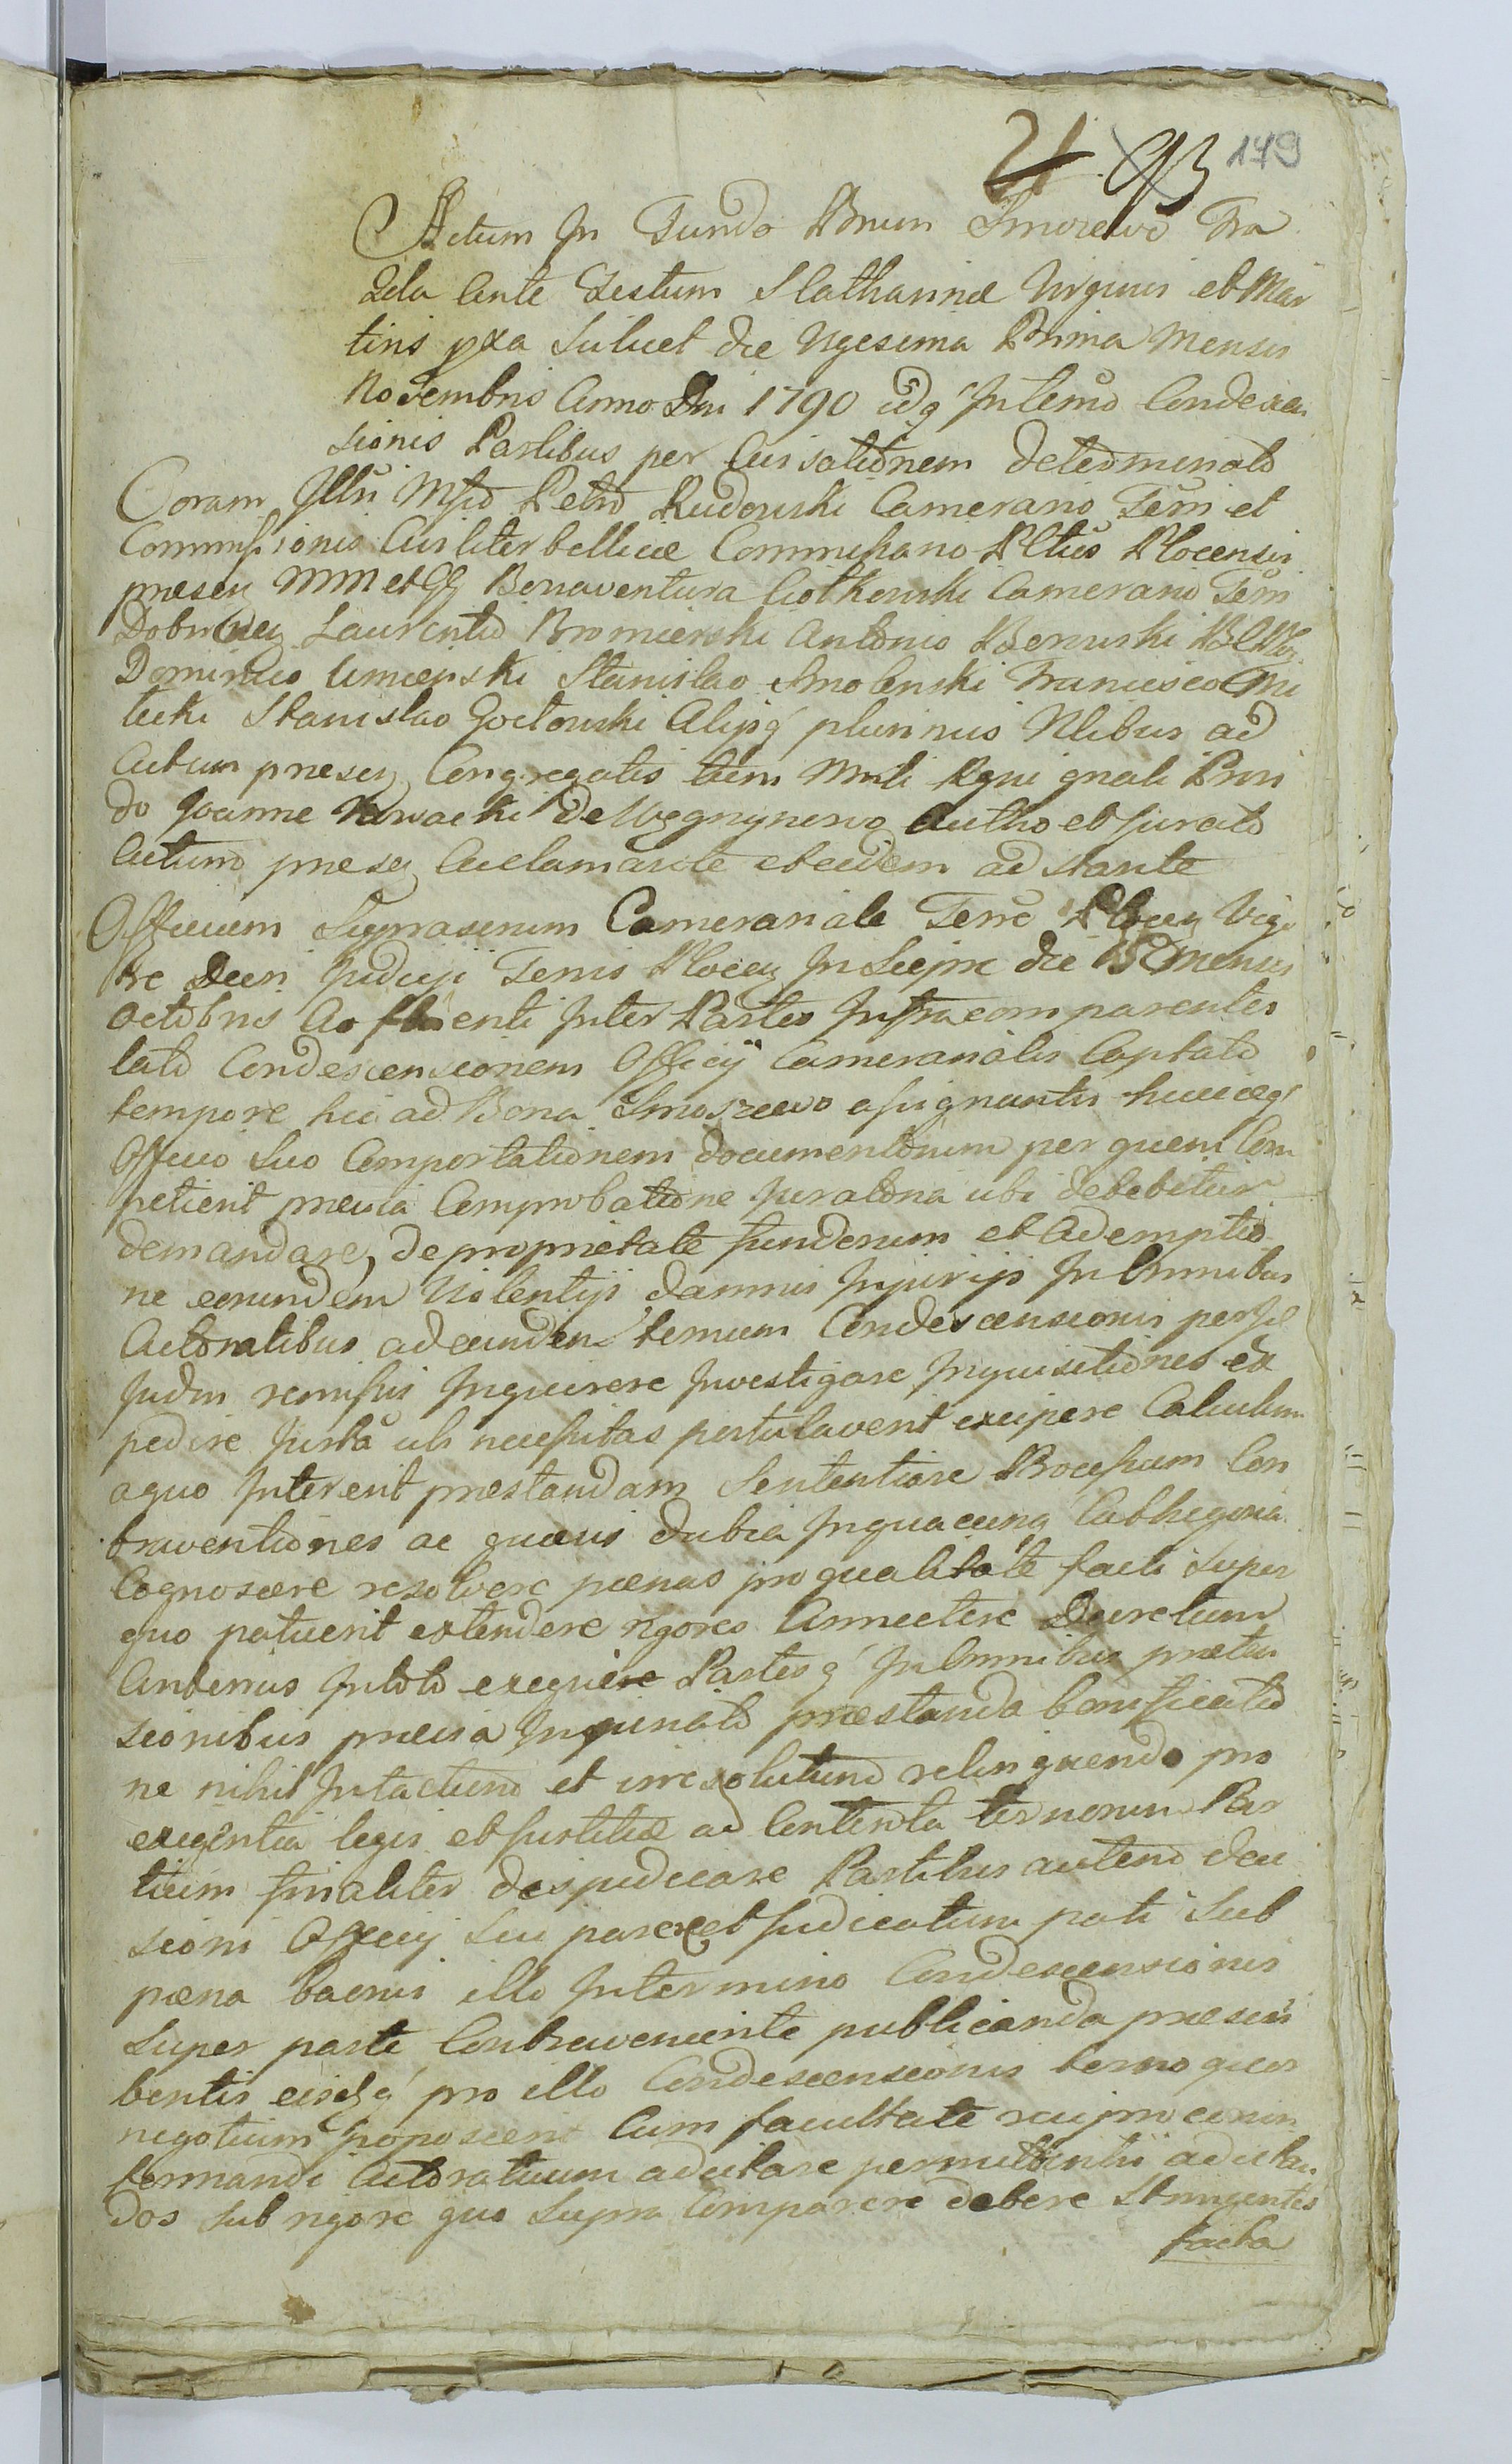 21. 93 179
Actum In Fundo Bnum Smoszewo Fra
Zda ante Festum S Catharinæ Virginis et Mar
tiris pxa scilicet die Vigesima Prima Mensis
Novembris Anno Dni 1790 idq In termo Condescen
sionis Partibus per Cursationem determinato
Coram Illri Mfco Petro Rudowski Camerario Terri et
Commissionis Civiliter bellicæ Commissario Pltus Plocensis
presen MM et GG Bonaventura Ciołkowski Camerario Terri
Dobrinen Laurentio Bromierski Antonio
Dominico Umieński Stanislao Smolenski Francisco Mi
lecki Stanislao Goctowski Alijsq plurimis Nlibus ad
Actum presen Congregatis tum Mnli Rgni gnali Provi
do Joanne Nowacki de Autho et Jurato
Actum presen acclamante et eidem ad stante
Officium Suprascrium Camerariale Terræ Plocen Vigo
re Decri Judicij Terris Plocen In Sierpc die 15 Mensis
Octobris Ao fluenti Inter Partes Infracomparentes
lato Condescensionem Officij Camerarialis Captato
tempore hic ad Bona Smoszewo assignantis huicæq
Officio Suo Comportationem documentorum per quem Com
petierit prævia Comprobatione juratoria ubi debebitur
demandare, de proprietate fundorum et Ademptio
ne eorundem Violentijs damnis Injurijs In Omnibus
Actoratibus ad eundem termum Condescensionis per Jd
Judm remissis Inquirere Investigare Inquisitiones ex
pedire Jurta ubi necessitas postulaverit excipere Calculum
a quo Intererit prestandam Sententiare Processum Con
traventiones ac quævis dubia In quacunq Cathegoria
Cognoscere resolvere pænas pro qualitate facti super
quo patuerit extendere rigores Annectere Decretum
Anterius In toto exequire Partesq In Omnibus præten
sionibus prævia Inquinato præstanda bonificatio
ne nihil Intactum et irresolutum relinquendo pro
exigentia legis et Justitiæ ad Contenta ternorum Par
tium finaliter desjudicare Partibus autem deci
sioni Officij sui parere et Judicatum pati sub
pæna banni illo In termino Condescensionis
Super parte Contraveniente publicanda præscri
bentis eisdq pro illo Condescensionis termo quem
negotium poposcerit Cum facultate reciproce
formandi Actoratuum adcitare permittentis adcitan
dos sub rigore quo supra Comparere debere Stringentis
facta